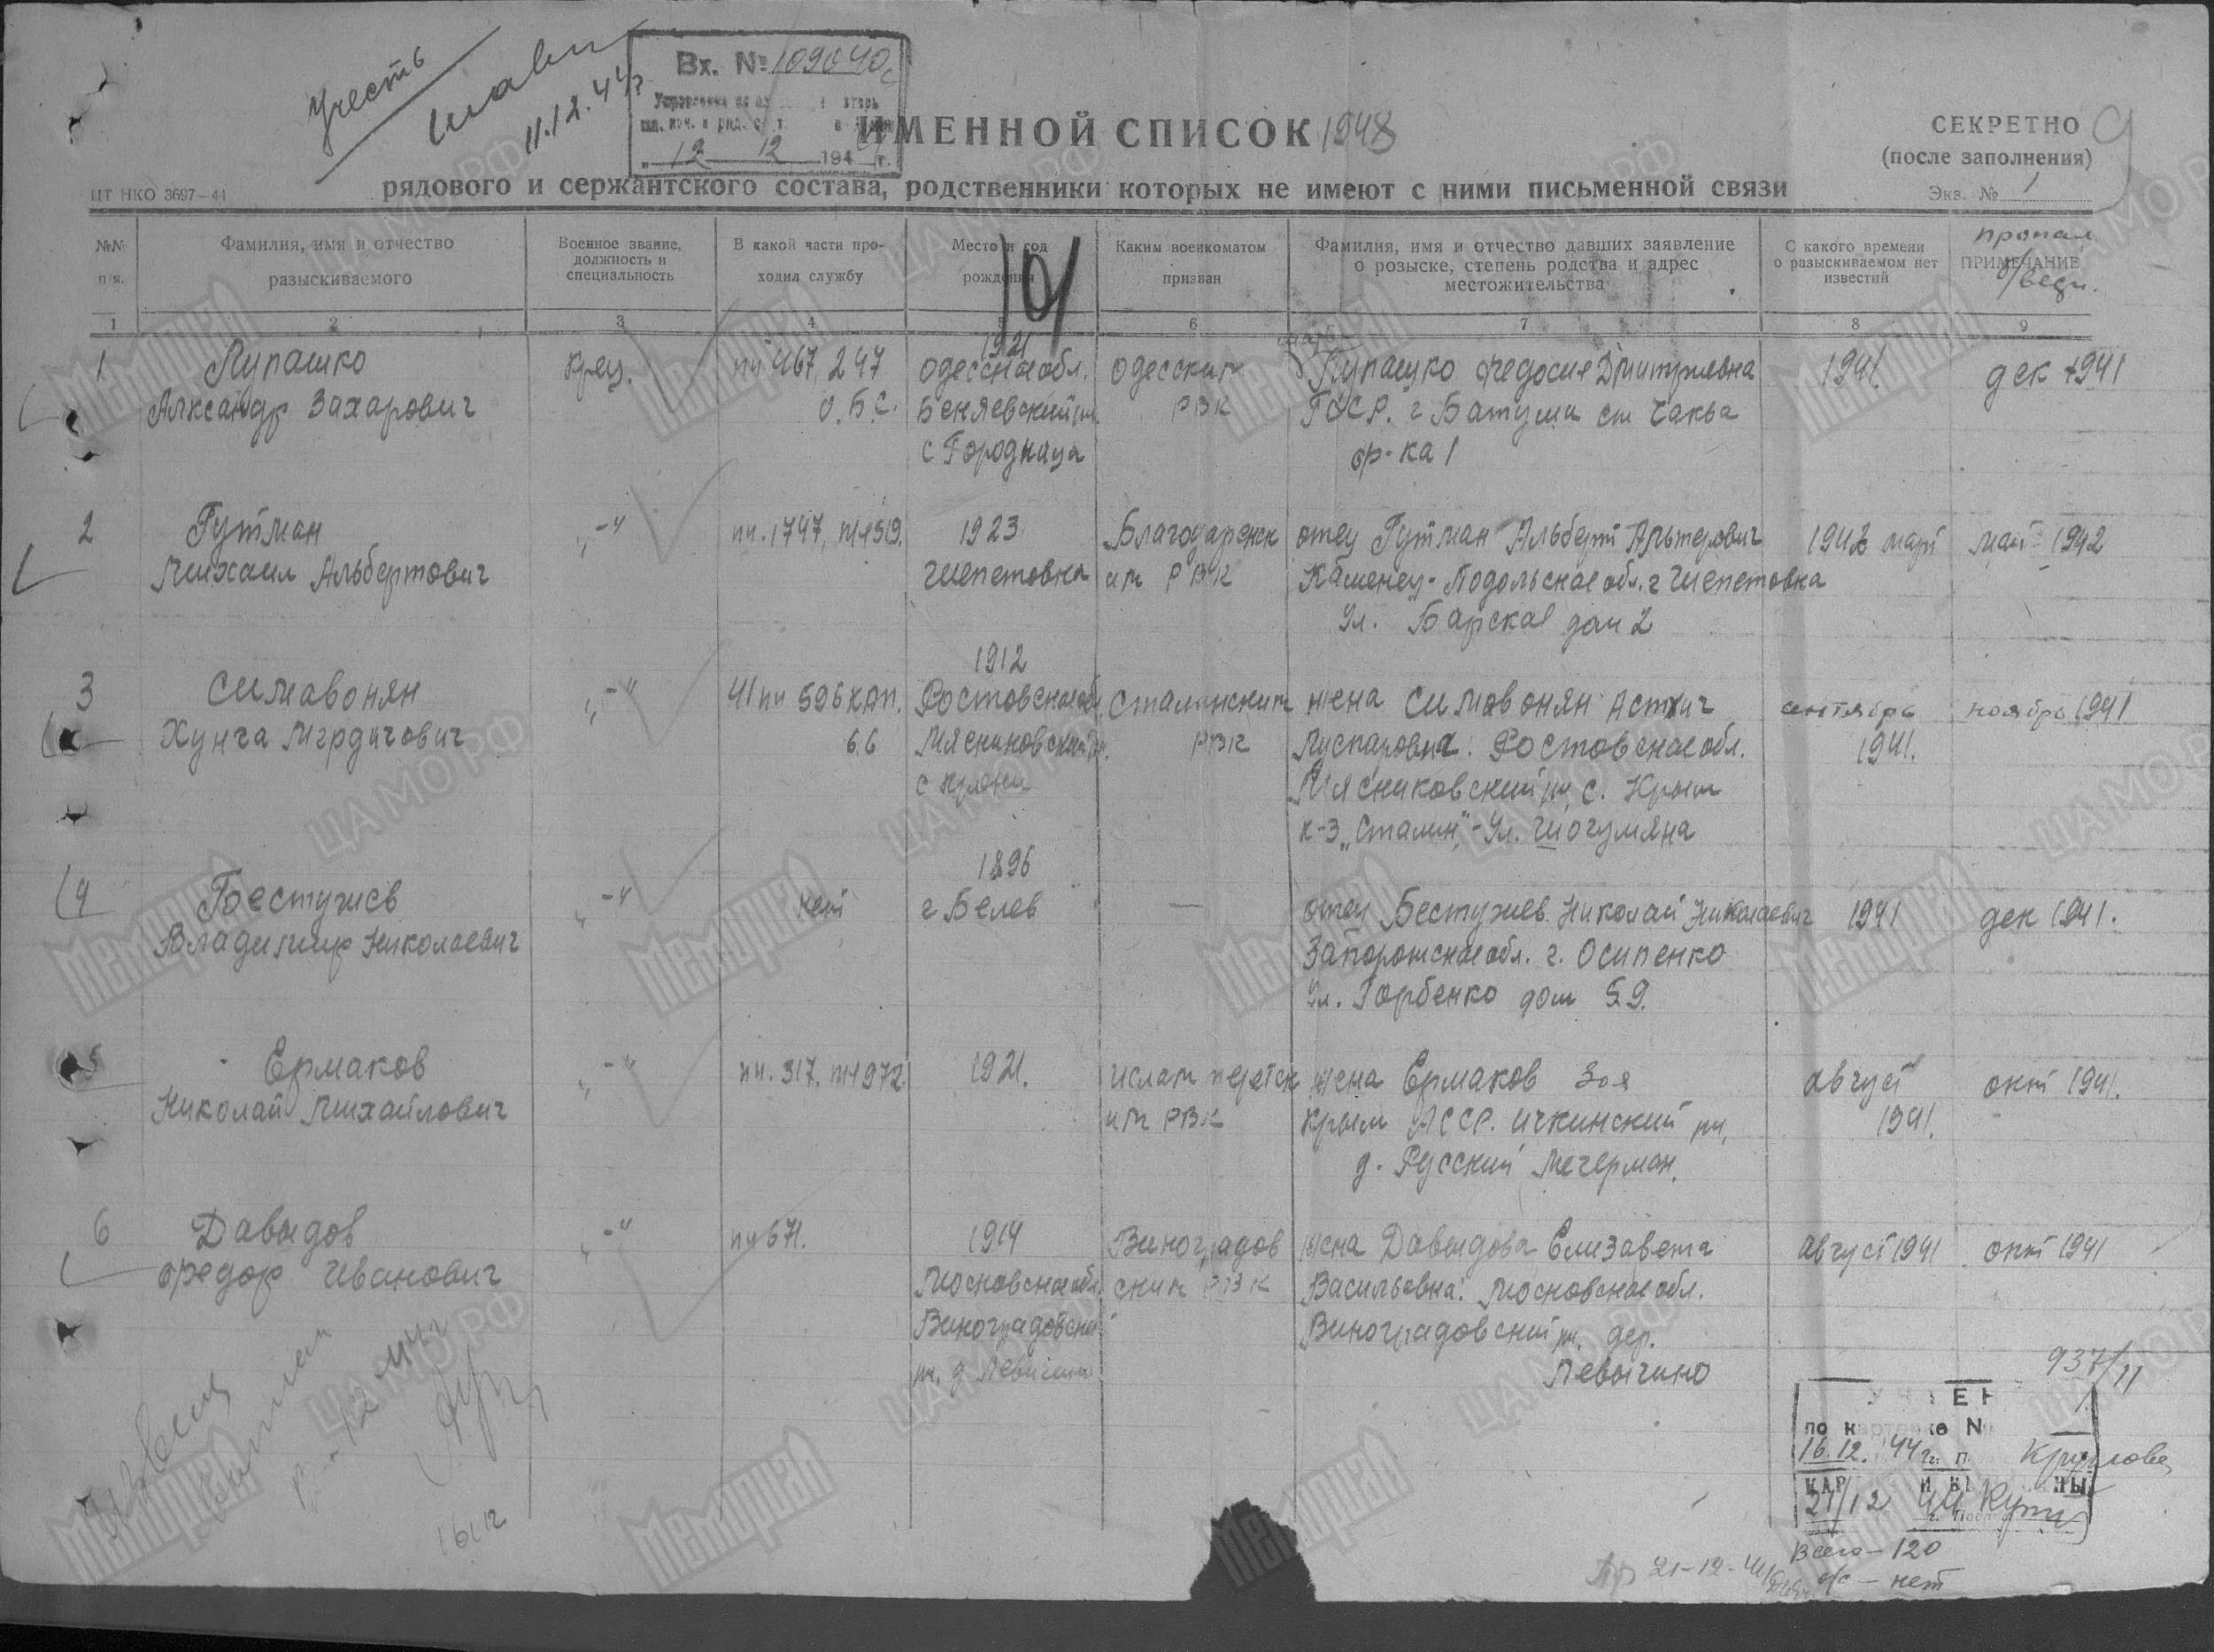 Учесть
11.12.44г
Вх. № 109040с
12 12 194 г.
ИМЕННОЙ СПИСОК 1948
СЕКРЕТНО
(после заполнения)
Экз. № 1
ЦТ НКО 3697—44
рядового и сержантского состава, родственники которых не имеют с ними письменной связи
№№ п/я.
Фамилия, имя и отчество разыскиваемого
Военное звание, должность и специальность
В какой части проходил службу
Место и год рождения
Каким военкоматом призван
Фамилия, имя и отчество давших заявление о розыске, степень родства и адрес местожительства
С какого времени о разыскиваемом нет известий
ПРИМЕЧАНИЕ
пропал
1 2 3 4 5 6 7 8 9
1 Лупашко крец. пп 467, 247 1921 Одесский Лупашко Федосия Дмитриевна 1941. дек 1941
Александр Захарович О.Б.С. Одесская обл. РВК ГССР. г Батуми ст Чаква
Беляевский рн. ф-ка 1
с Городница
2 Гутман -"- пп. 1747, п/я519. 1923 Благодаренск отец Гутман Альберт Альтерович 1942 март май 1942
Михаил Альбертович Шепетовка ий РВК Каменец-Подольская обл. г Шепетовка
Ул. Барская дом 2
3 Симавонян -"- 41 пп 596 кап. 1912 Сталинский жена Симавонян Астхиг сентябрь ноябрь 1941
Хунча Мгрдичович 66 Ростовская обл. РВК Ростовская обл. 1941.
Мясниковский рн. Мясниковский рн, с. Крым
с Крым к-з „Сталин"- Ул. Шогумяна
4 Бестужев -"- нет 1896 — отец Бестужев Николай Николаевич 1941 дек 1941.
Владимир Николаевич г Белев Запорожская обл. г. Осипенко
Ул. Горбенко дом 59.
5 Ермаков -"- пп. 317. п/я972. 1921. Ислам терекск жена Ермаков Зоя август окт 1941.
Николай Михайлович ий РВК Крым АССР. Ичкинский рн, 1941.
д. Русский Мечерман.
6 Давыдов -"- пп 671. 1914 Виноградов жена Давыдова Елизавета август 1941 окт 1941
Федор Иванович Московская обл. ский РВК Васильевна. Московская обл.
Виноградовский Виноградовский рн. дер.
рн. д Левычино Левычино
937/11
по карточке №
16.12. 44 г.
21/12 44
16/12
21-12-44
Всего - 120
о/с - нет
Мемориал
ЦАМО РФ